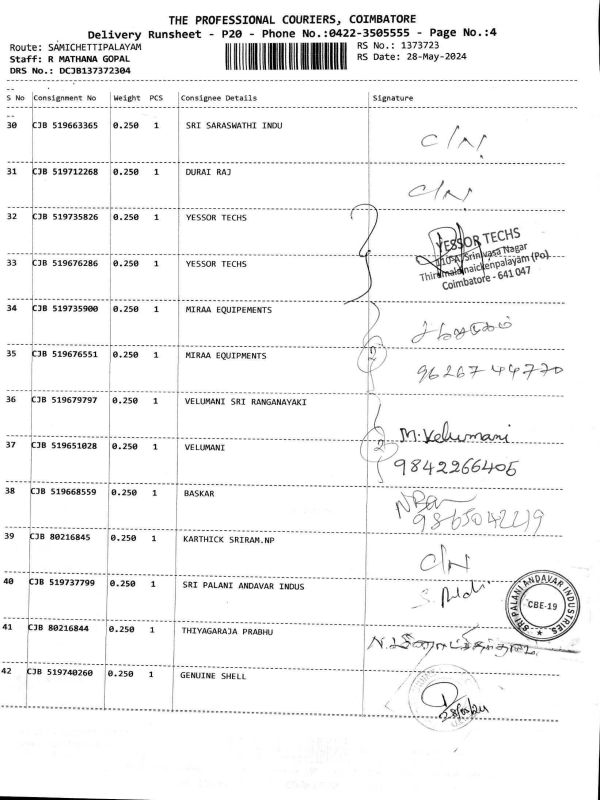 THE PROFESSIONAL COURIERS, COIMBATORE
Delivery Runsheet - P20 - Phone No.:0422-3505555 - Page No.:4
Route: SAMICHETTIPALAYAM RS No.: 1373723
Staff: R MATHANA GOPAL RS Date: 28-May-2024
DRS No.: DCJB137372304
S No Consignment No Weight PCS Consignee Details Signature
30 CJB 519663365 0.250 1 SRI SARASWATHI INDU
C/N
31 CJB 519712268 0.250 1 DURAI RAJ
C/N
32 CJB 519735826 0.250 1 YESSOR TECHS
YESSOR TECHS
Srinivasa Nagar
33 CJB 519676286 0.250 1 YESSOR TECHS
Thirumalainaickenpalayam (Po)
Coimbatore - 641 047
34 CJB 519735900 0.250 1 MIRAA EQUIPEMENTS
35 CJB 519676551 0.250 1 MIRAA EQUIPMENTS
2
96267 44770
36 CJB 519679797 0.250 1 VELUMANI SRI RANGANAYAKI
M. Velumani
37 CJB 519651028 0.250 1 VELUMANI
2
9842266405
38 CJB 519668559 0.250 1 BASKAR
9865042219
39 CJB 80216845 0.250 1 KARTHICK SRIRAM.NP
C/N
40 CJB 519737799 0.250 1 SRI PALANI ANDAVAR INDUS
SRI PALANI ANDAVAR INDUSTRIES
CBE-19
41 CJB 80216844 0.250 1 THIYAGARAJA PRABHU
42 CJB 519740260 0.250 1 GENUINE SHELL
28/05/24